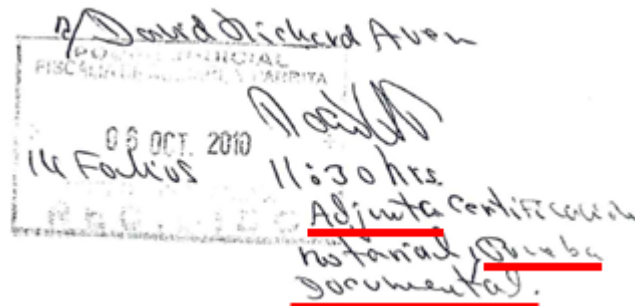 David Richard Aven
PODER JUDICIAL
FISCALIA DE AGUIRRE Y PARRITA
06 OCT. 2010
14 Folios 11:30 hrs.
Adjunta certificación
notarial, Prueba
Documental.
RECIBIDO